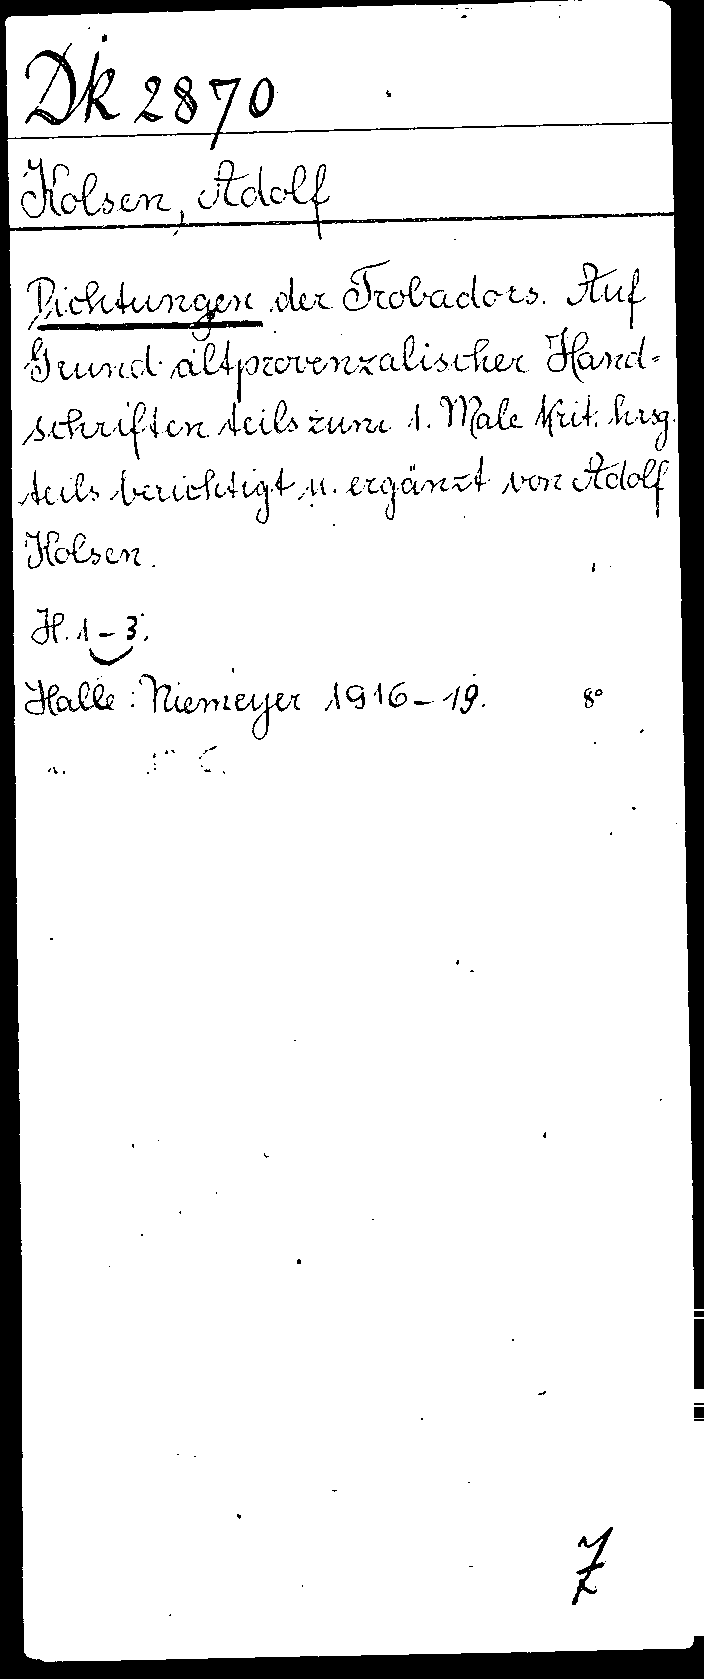 Dk 2870
Kolsen, Adolf
Dichtungen der Trobadors. Auf
Grund altprovenzalischer Hand-
schriften teils zum 1. Male krit. hrsg.
teils berichtigt u. ergänzt von Adolf
Kolsen.
H. 1-3.
Halle: Niemeyer 1916-19. 8°